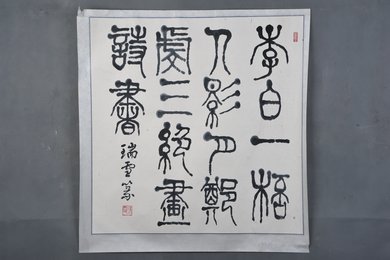 李白一桮
人影月鄭
虔三絕畫
詩書
瑞雪篆